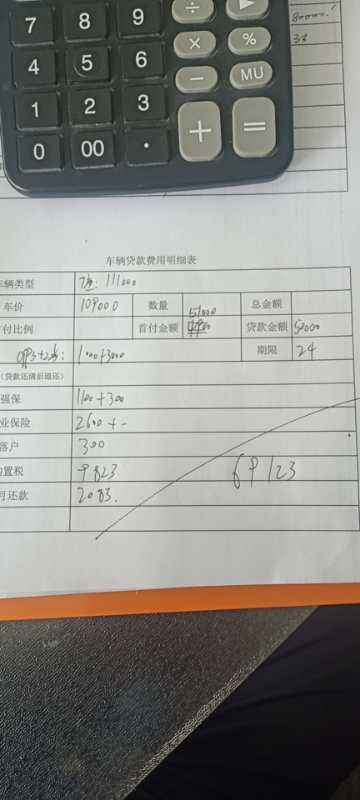 7 8 9 ÷
4 5 6 × %
1 2 3 − MU
0 00 · + =
车辆贷款费用明细表
车辆类型 111000
车价 109000 数量 总金额
付比例 首付金额 51000 贷款金额 50000
1000+3000 期限 24
(贷款还清后退还)
强保 1100+300
业保险 2600+-
落户 300
购置税 9823 69123
月还款 2083.